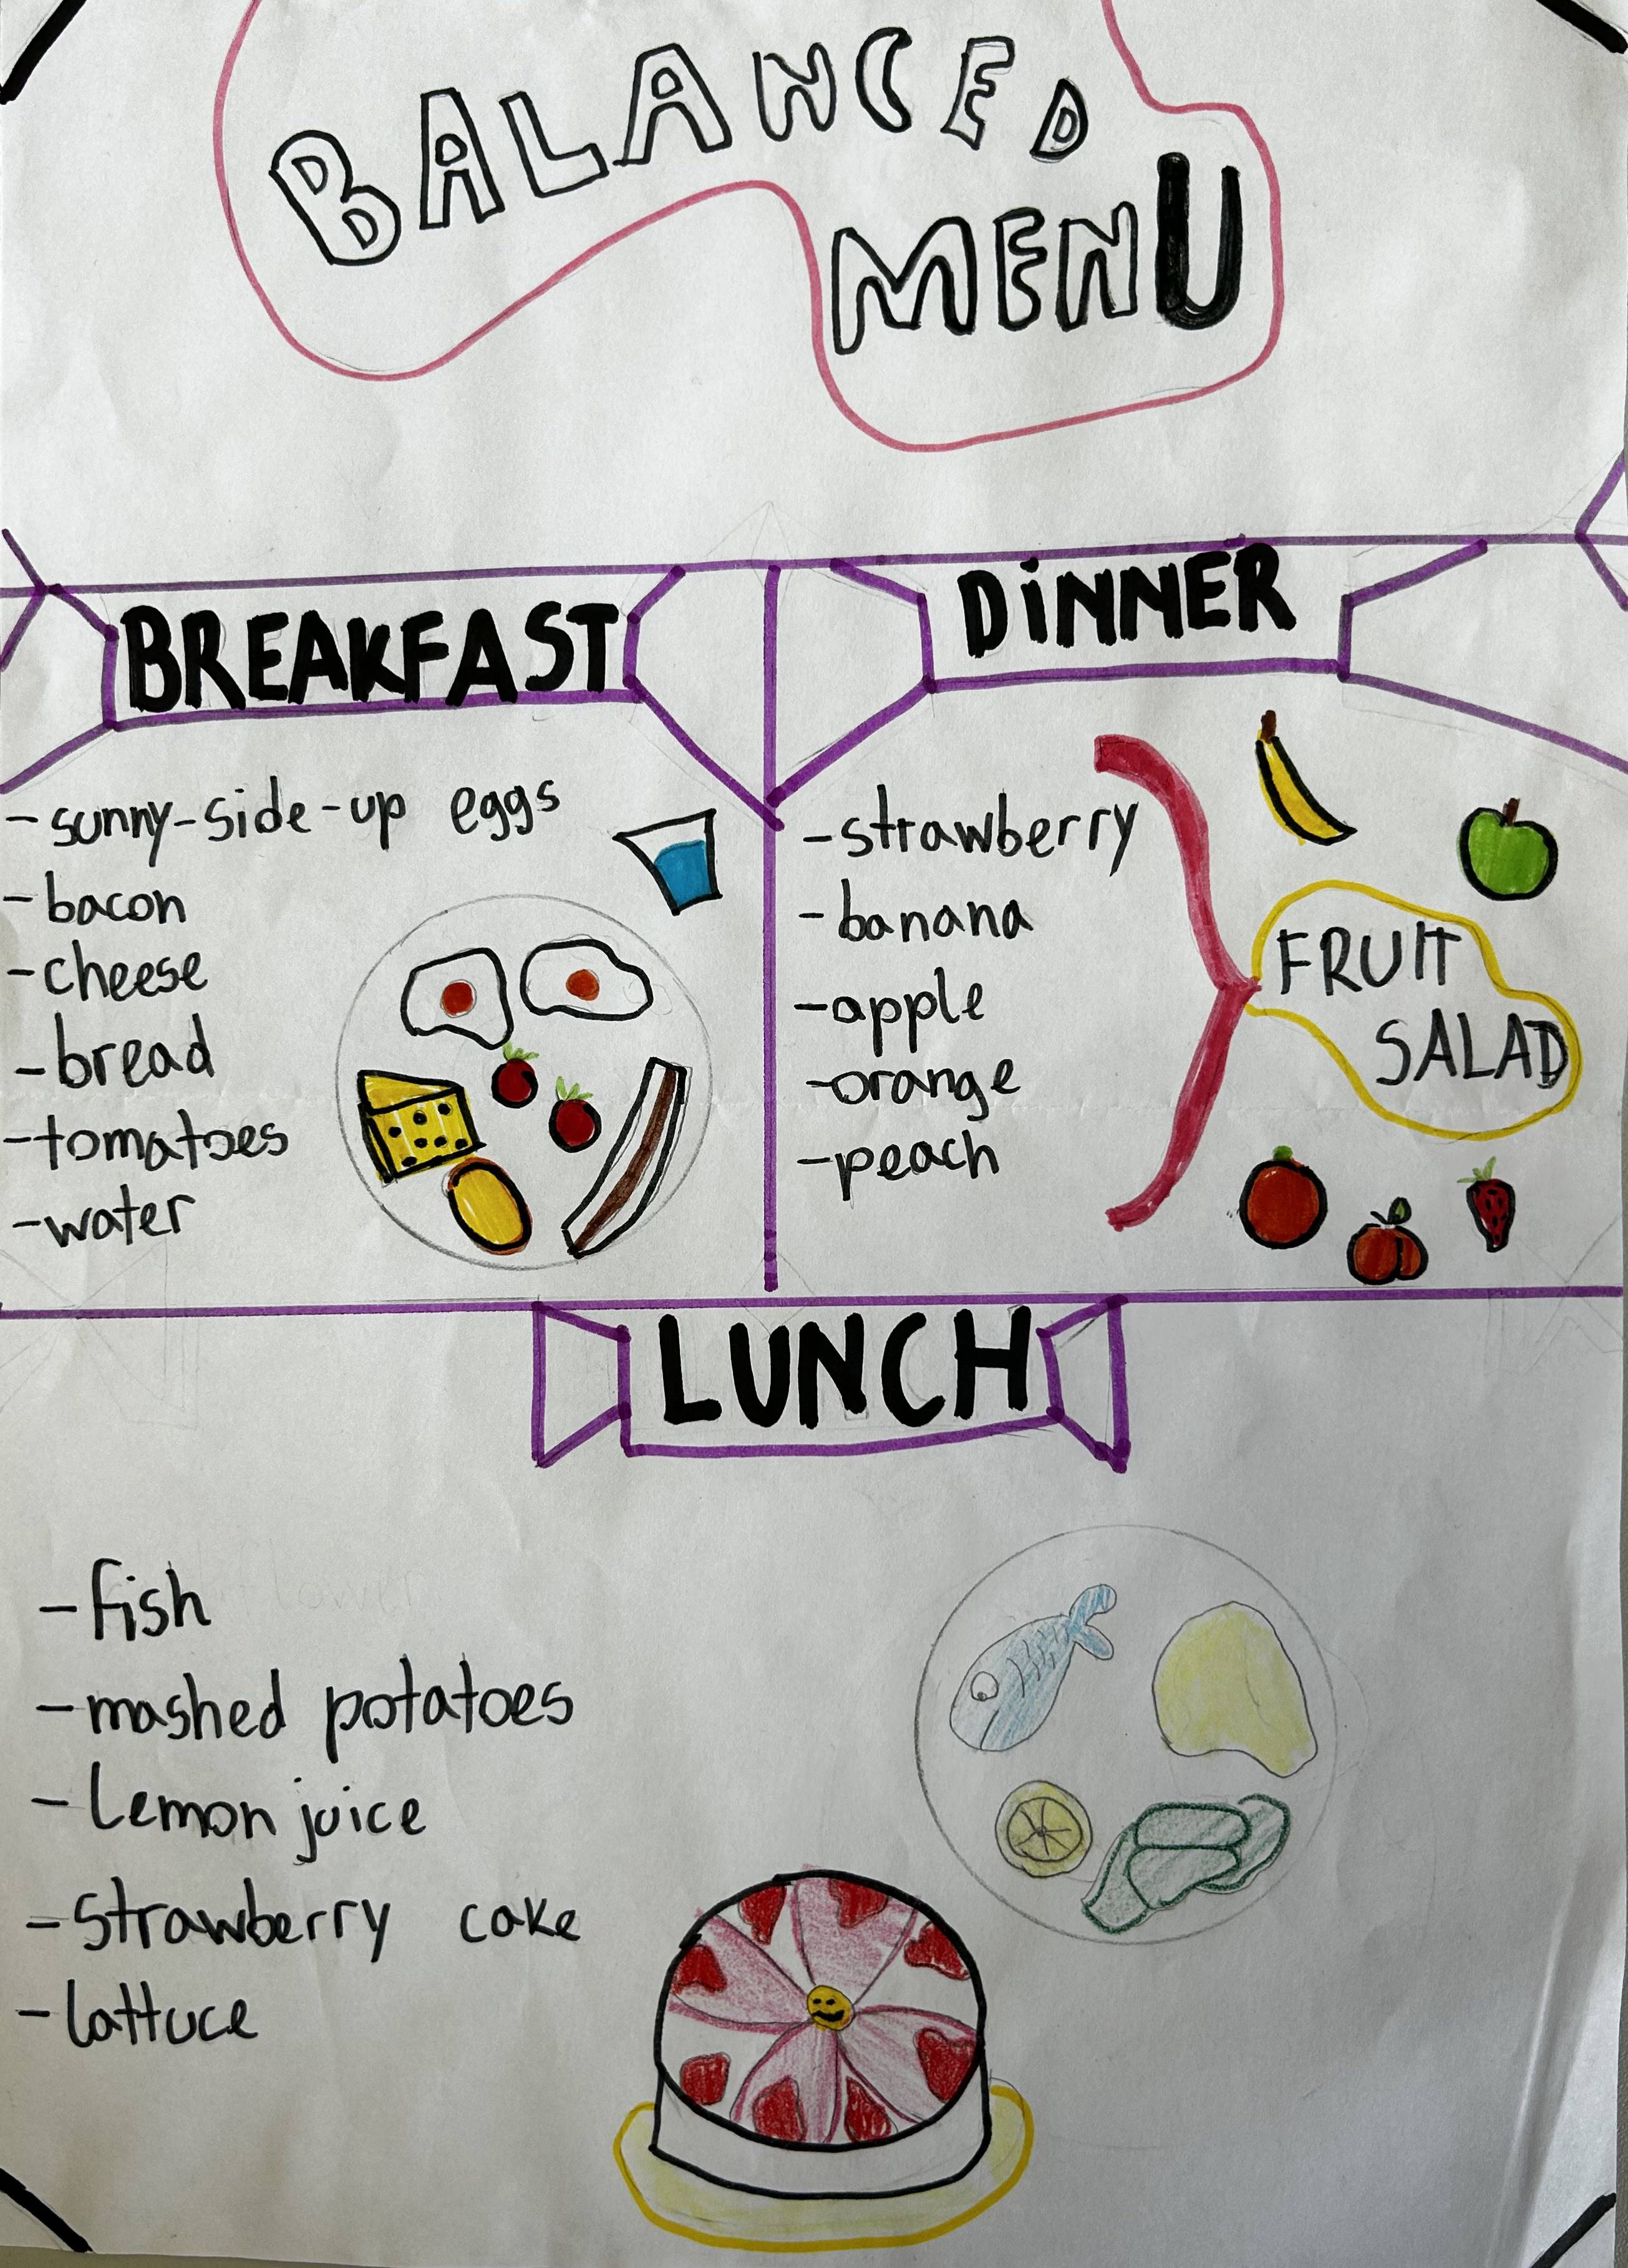 BALANCED
MENU
BREAKFAST
-sunny-side-up eggs
-bacon
-cheese
-bread
-tomatoes
-water
DiNNER
-strawberry
-banana
-apple
-orange
-peach
FRUIT
SALAD
LUNCH
-fish
-mashed potatoes
-Lemon juice
-Strawberry cake
-lattuce